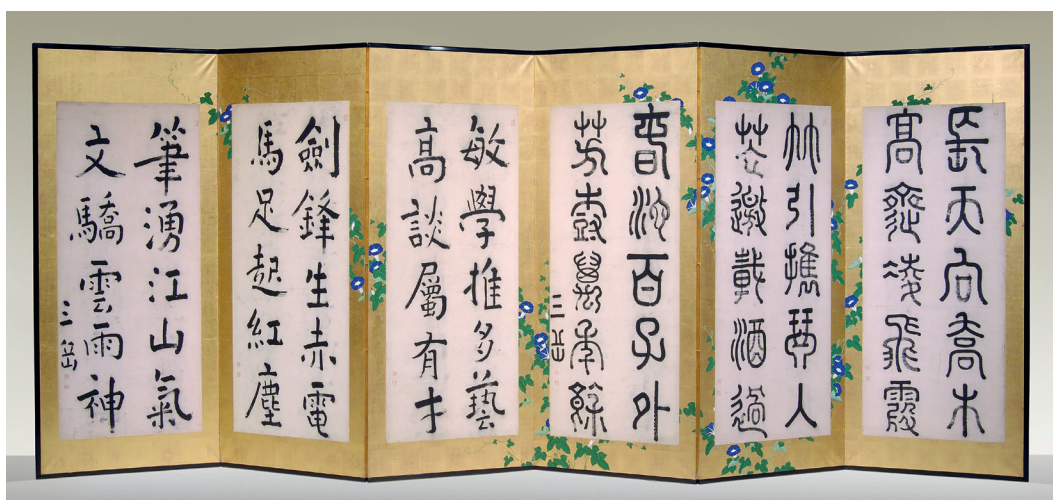 天向木
高凌飛霞
竹引攜琴入
花邀載酒過
春池百子外
芳樹萬年餘
三岳
敏學推多藝
高談屬有才
劍鋒生赤電
馬足起紅塵
筆湧江山氣
文驕雲雨神
三岳